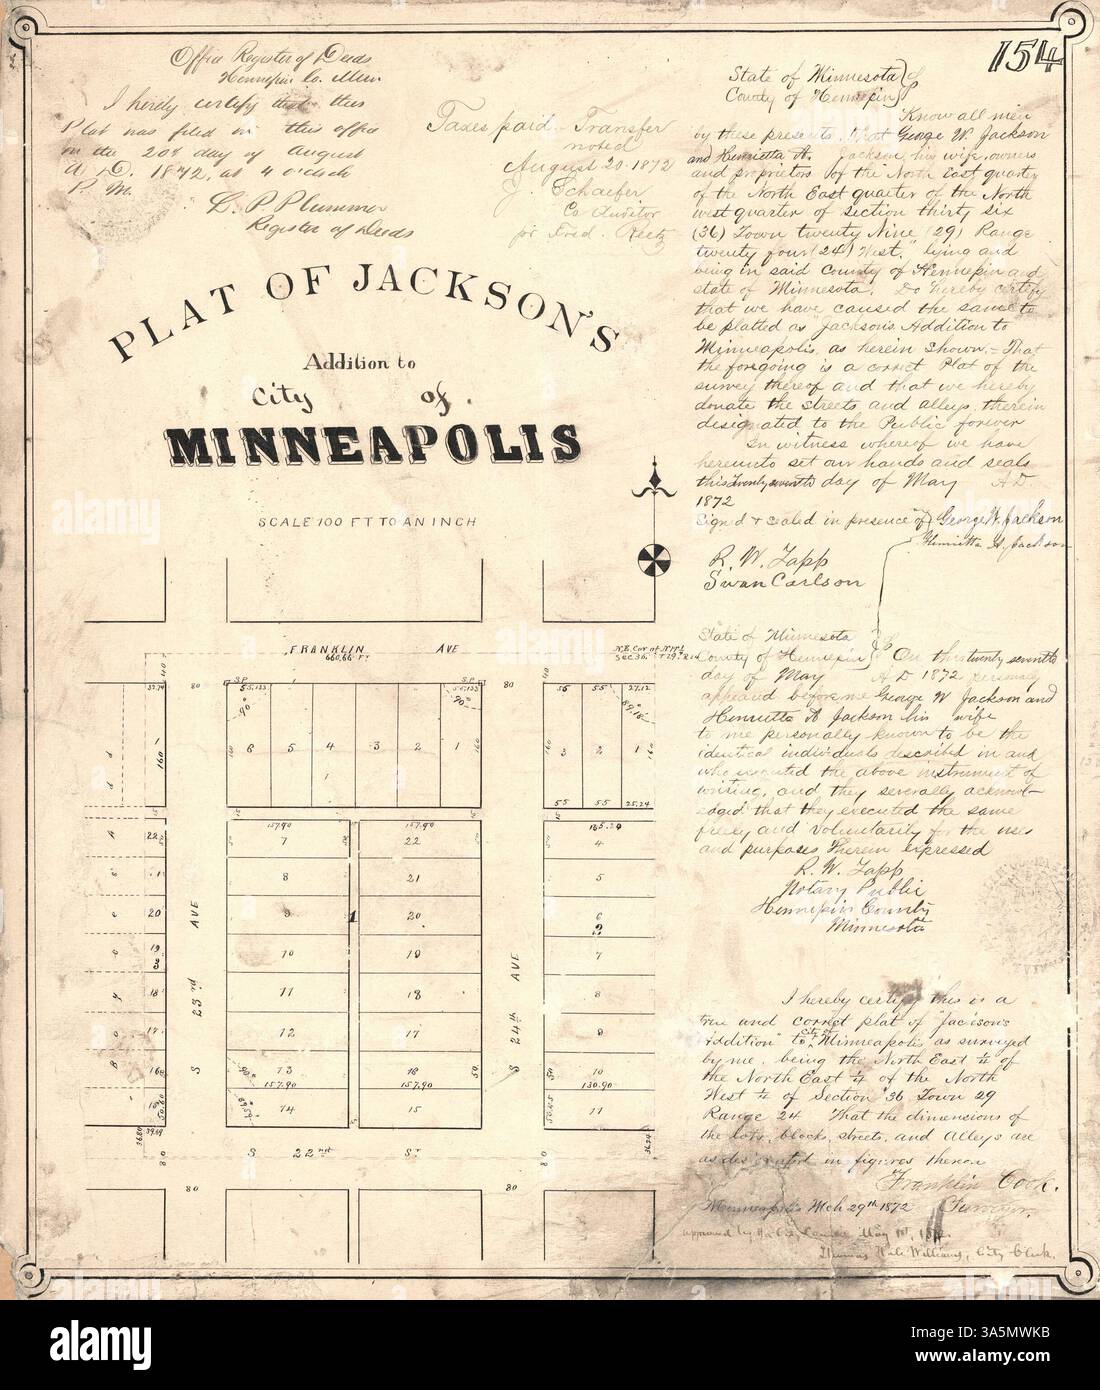 154
Office Register of Deeds
Hennepin Co. Minn
I hereby certify that this
Plat was filed in this office
on the 20th day of August
A.D. 1872, at 4 o'clock
P. M.
L. P. Plummer
Register of Deeds
Taxes paid & Transfer
noted
August 20 1872
J. Schaefer
Co Auditor
for Fred. Reetz
PLAT OF JACKSON'S
Addition to
City of.
MINNEAPOLIS
SCALE 100 FT TO AN INCH
State of Minnesota
County of Hennepin
Know all men
by these presents, That George W. Jackson
and Henrietta A. Jackson, his wife, owners
and proprietors of the North East quarter
of the North East quarter of the North
west quarter of section thirty six
(36) Town twenty Nine (29) Range
twenty four (24) West," lying and
being in said County of Hennepin and
state of Minnesota, Do hereby certify
that we have caused the same to
be platted as "Jackson's Addition to
Minneapolis, as herein shown.- That
the foregoing is a correct Plat of the
survey thereof and that we hereby
donate the streets and alleys therein
designated to the Public forever
In witness whereof we have
hereunto set our hands and seals
this Twenty seventh day of May A D
1872
Sign'd & sealed in presence of George W. Jackson
Henrietta A. Jackson
R. W. Zapp
Swan Carlson
State of Minnesota
County of Hennepin On this twenty seventh
day of May A D 1872 personaly
appeard before me George W Jackson and
Henrietta A Jackson his wife
to me personally known to be the
identical individuals described in and
who executed the above instrument of
writing, and they severally acknowl-
edged that they executed the same
freely and voluntarily for the uses
and purposes therein expressed
R. W. Zapp
Notary Public
Hennepin County
Minnesota
I hereby certify this is a
true and correct plat of "Jackson's
Addition to City of Minneapolis as surveyed
by me, being the North East 1/4 of
the North East 1/4 of the North
West 1/4 of Section 36 Town 29
Range 24 That the dimensions of
the lots, blocks, streets, and Alleys are
as designated in figures thereon
Franklin Cook.
Minneapolis Mch 29th 1872 Surveyor.
Thomas Hale Williams, City Clerk.
FRANKLIN AVE
660,66 FT
N.E. Cor of N.W.1/4
S.P. S.P.
55,133 55,133
80
55 55 27,12
90° 90°
6 5 4 3 2 1
3 2 1
160 160
55 55 25.24
157.90 157.90 185.29
7 22 4
8 21 5
9 1 20 6
2
10 19 7
11 18 8
12 17 9
13 16 10
157.90 157.90 130.90
14 15 11
22
20
19
18
17
16
S 23rd AVE
S 24th AVE
S 22nd ST
80 80
80 80
alamy
Image ID: 3A5MWKB
www.alamy.com